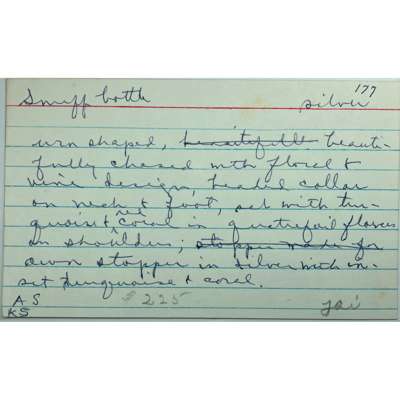 177
Snuff bottle silver
urn shaped, beautifully beauti-
fully chased with floral &
vine design, beaded collar
on neck & foot, set with tur-
quoise & red coral in quatrefoil flowers
on shoulders; stopper made for
own stopper in silver with in-
set turquoise & coral.
A S $225 jai
KS